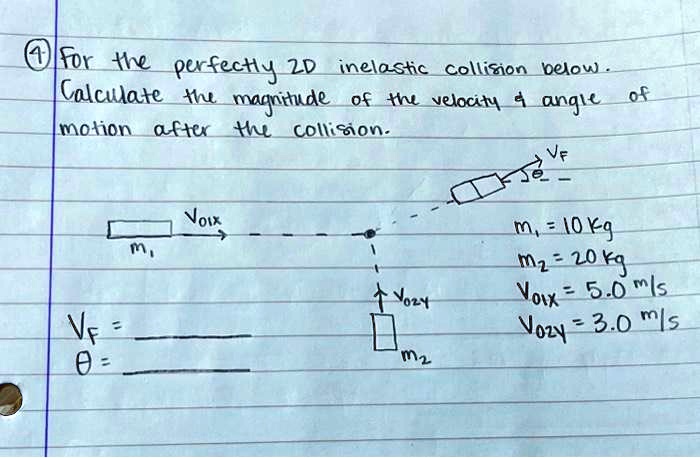 ④ For the perfectly 2D inelastic collision below.
Calculate the magnitude of the velocity & angle of
motion after the collision.
VF
θ
V01x
m1
m1 = 10 Kg
m2 = 20 Kg
V01x = 5.0 m/s
V02y = 3.0 m/s
V02y
m2
VF =
θ =